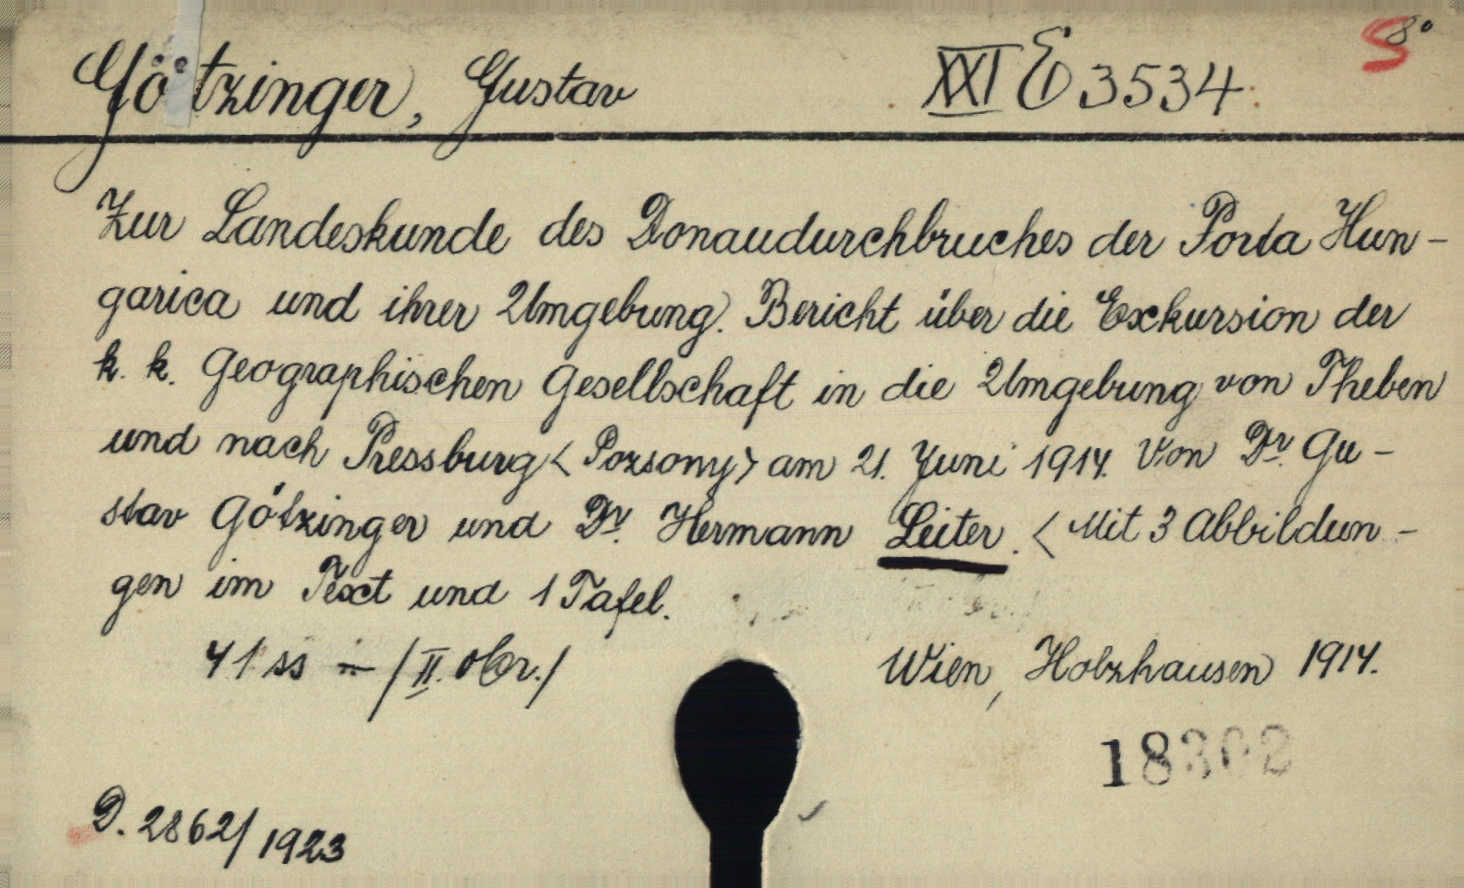 Götzinger, Gustav XXI E 3534. 8°
S
Zur Landeskunde des Donaudurchbruches der Porta Hun-
garica und ihrer Umgebung. Bericht über die Exkursion der
k. k. Geographischen Gesellschaft in die Umgebung von Theben
und nach Pressburg < Pozsony > am 21. Juni 1914. Von Dr. Gu-
stav Götzinger und Dr. Hermann Leiter. < Mit 3 Abbildun-
gen im Text und 1 Tafel.
41 ss — / II. obr. / Wien, Holzhausen 1914.
18302
D. 2862/1923